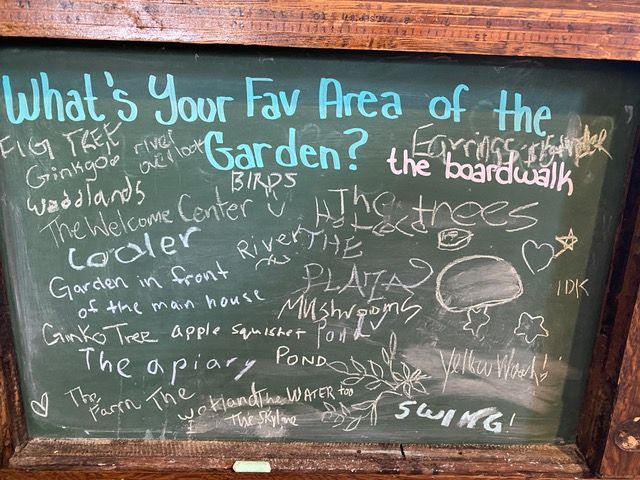 What's Your Fav Area of the
Garden?
FIG TREE river
overlook
Ginkgoe
Earrings
the boardwalk
Woodlands
BIRDS
The Welcome Center
The trees
Cooler
River THE
PLAZA
Garden in front
of the main house
IDK
Mushrooms
Ginko Tree apple squisher Pond
The apiary
POND
Yellow Wood!
The
Farm The
wetland The WATER too
The Skyline
SWING!